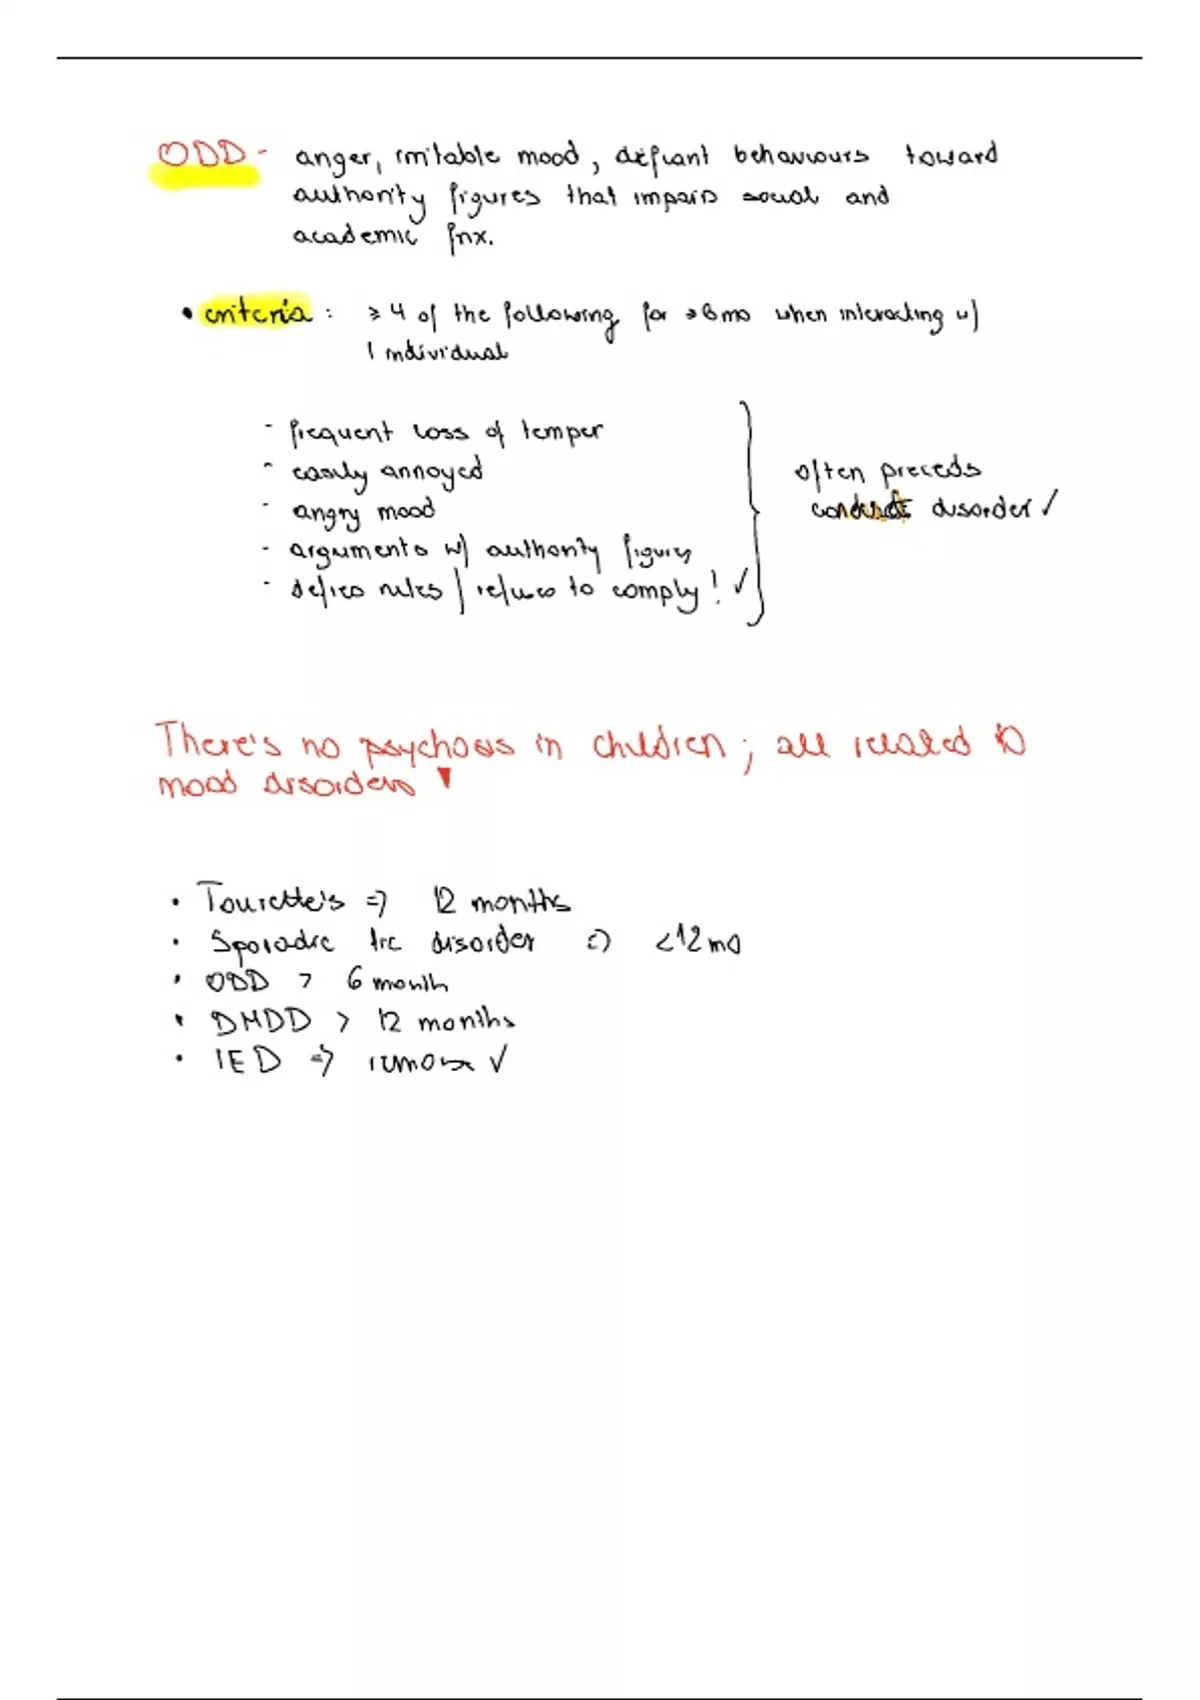 ODD - anger, irritable mood, defiant behaviours toward
authority figures that impairs social and
academic fnx.
• criteria : ≥ 4 of the following for >6mo when interacting w/
1 individual
- frequent loss of temper
- easily annoyed
- angry mood
- arguments w/ authority figures
- defies rules / refuses to comply! ✓
often preceds
conduct disorder ✓
There's no psychosis in children; all related to
mood disorders
• Tourette's => 12 months
• Sporadic tic disorder => <12mo
• ODD > 6 month
• DMDD > 12 months
• IED => remorse ✓